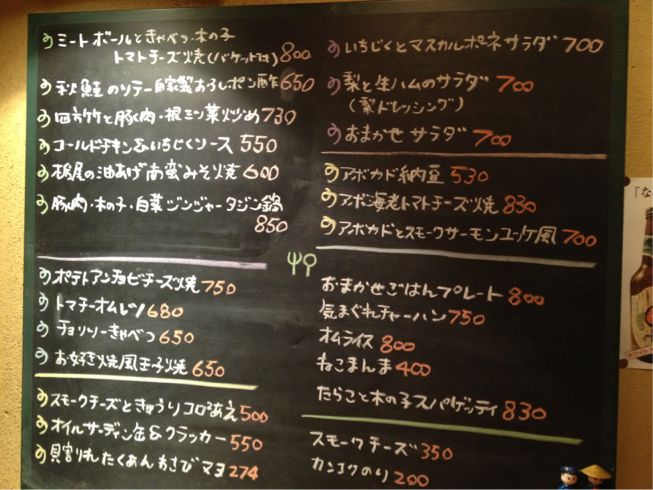 ミートボールときゃべつ・木の子
トマトチーズ焼(バケット付) 800
秋鮭のソテー自家製おろしポン酢 650
四方竹と豚肉・根三つ葉炒め 730
コールドチキン&いちじくソース 550
栃尾の油あげ南蛮みそ焼 600
豚肉・木の子・白菜ジンジャータジン鍋
850
ポテトアンチョビチーズ焼 750
トマチーオムレツ 680
チョリソーきゃべつ 650
お好き焼風玉子焼 650
スモークチーズときゅうりコロコロあえ 500
オイルサーディン缶&クラッカー 550
貝割れたくあんわさびマヨ 274
いちじくとマスカルポーネサラダ 700
梨と生ハムのサラダ 700
(梨ドレッシング)
おまかせサラダ 700
アボカド納豆 530
アボ海老トマトチーズ焼 830
アボカドとスモークサーモンユッケ風 700
おまかせごはんプレート 800
気まぐれチャーハン 750
オムライス 800
ねこまんま 400
たらこと木の子スパゲッティ 830
スモークチーズ 350
カンコクのり 200
「な